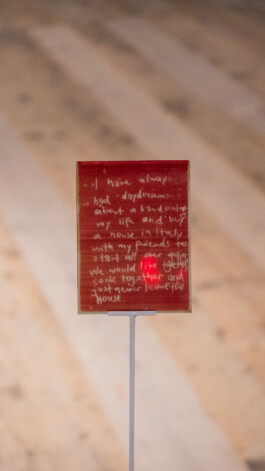 I have always
had daydreams
about abandoning
my life and buy
a house in Italy
with my friends to
start all over again
We would live together
cook together and
just never leave the
house.